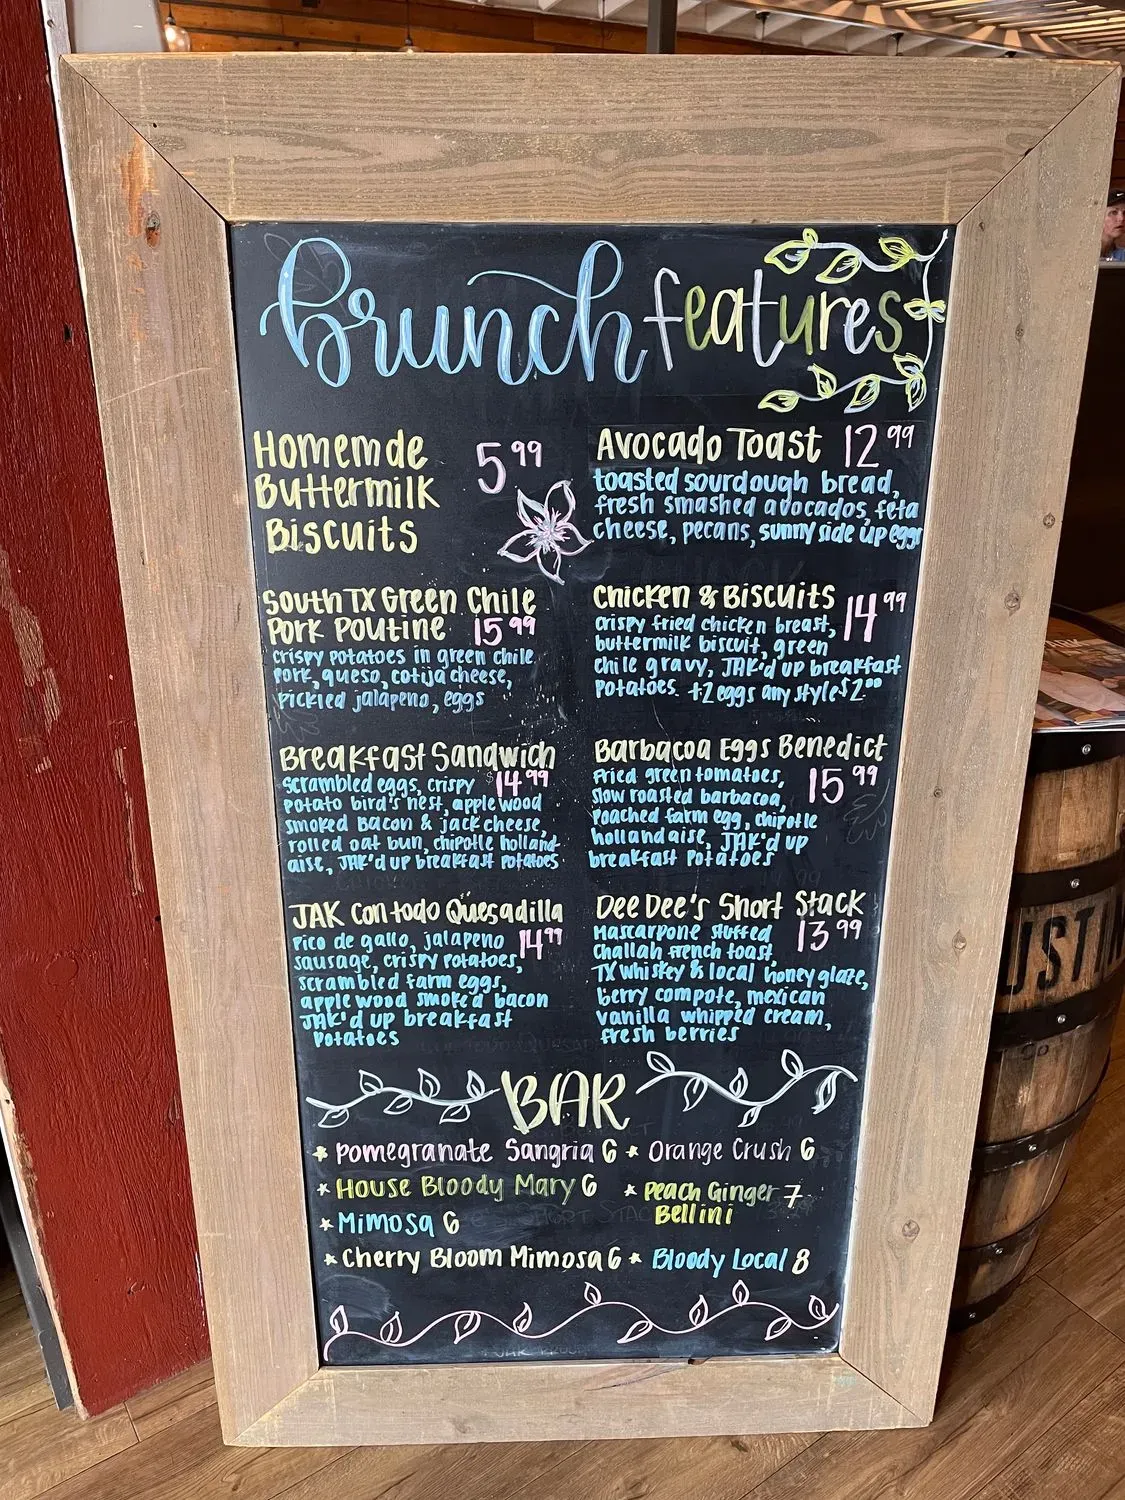 Brunch features
Homemde
Buttermilk
Biscuits
5.99
South TX Green Chile
Pork Poutine 15.99
crispy potatoes in green chile
pork, queso, cotija cheese,
pickled jalapeno, eggs
Breakfast Sandwich
scrambled eggs, crispy $14.99
potato bird's nest, applewood
smoked bacon & jack cheese,
rolled oat bun, chipotle holland-
aise, JAK'd up breakfast potatoes
JAK Con todo Quesadilla
Pico de gallo, jalapeno 14.99
sausage, crispy potatoes,
scrambled farm eggs,
applewood smoked bacon
JAK'd up breakfast
potatoes
Avocado Toast 12.99
toasted sourdough bread,
fresh smashed avocados, feta
cheese, pecans, sunny side up eggs
Chicken & Biscuits 14.99
crispy fried chicken breast,
buttermilk biscuit, green
chile gravy, JAK'd up breakfast
potatoes. +2 eggs any style $2.00
Barbacoa Eggs Benedict
fried green tomatoes, 15.99
slow roasted barbacoa,
poached farm egg, chipotle
hollandaise, JAK'd up
breakfast potatoes
Dee Dee's Short Stack
Mascarpone stuffed 13.99
challah french toast,
TX whiskey & local honey glaze,
berry compote, mexican
vanilla whipped cream,
fresh berries
BAR
* Pomegranate Sangria 6 * Orange Crush 6
* House Bloody Mary 6 * Peach Ginger 7
Bellini
* Mimosa 6
* Cherry Bloom Mimosa 6 * Bloody Local 8